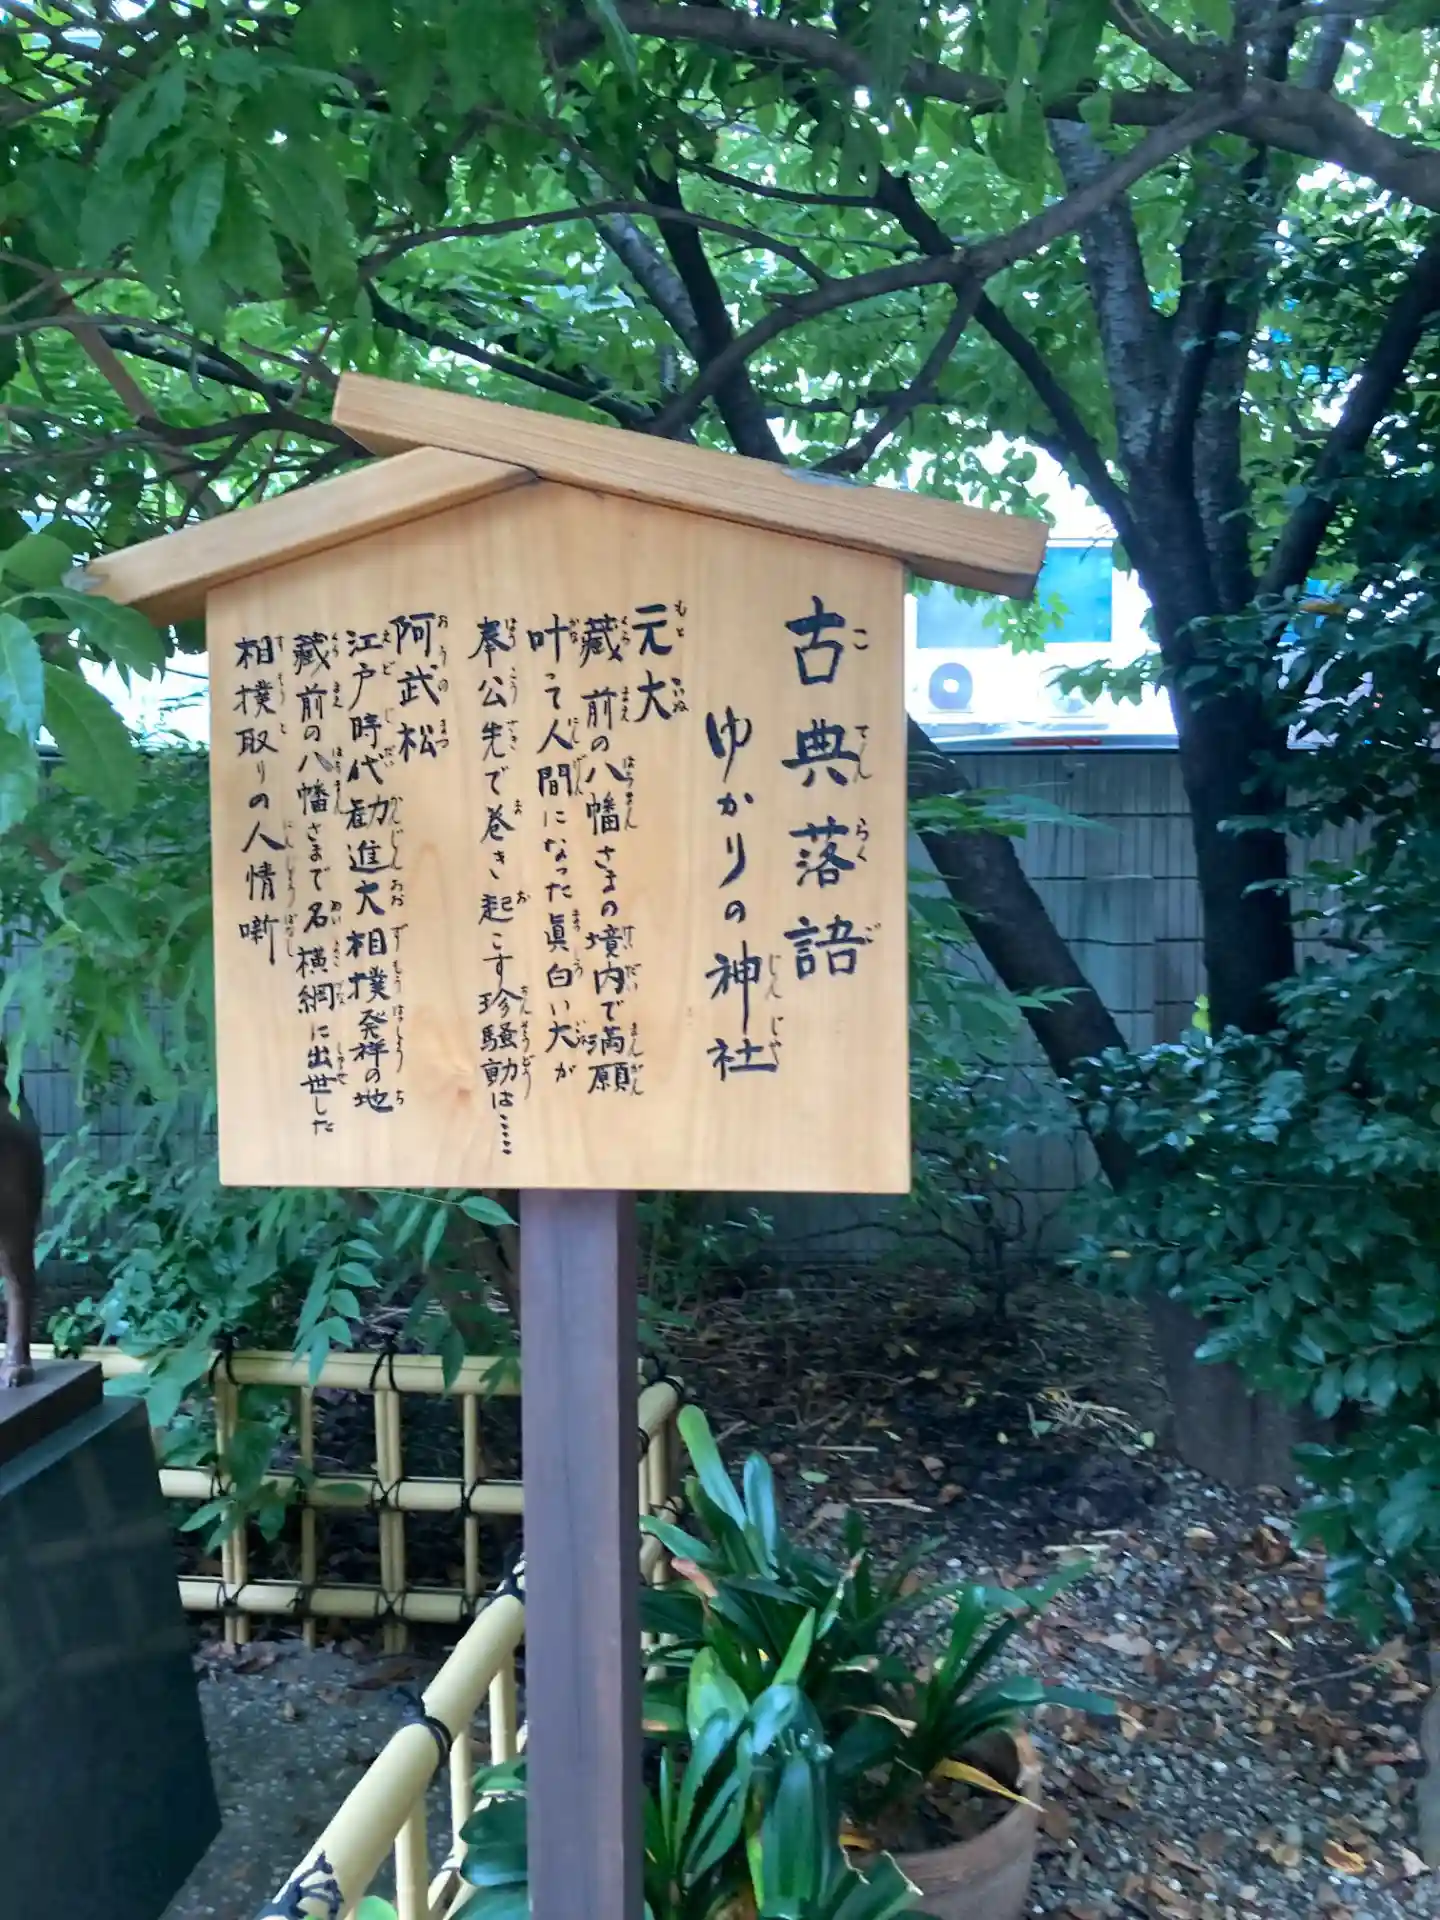 古典落語
ゆかりの神社
元犬
藏前の八幡さまの境内で満願
叶って人間になった眞白い犬が
奉公先で巻き起こす珍騒動は……
阿武松
江戸時代勧進大相撲発祥の地
藏前の八幡さまで名横綱に出世した
相撲取りの人情噺